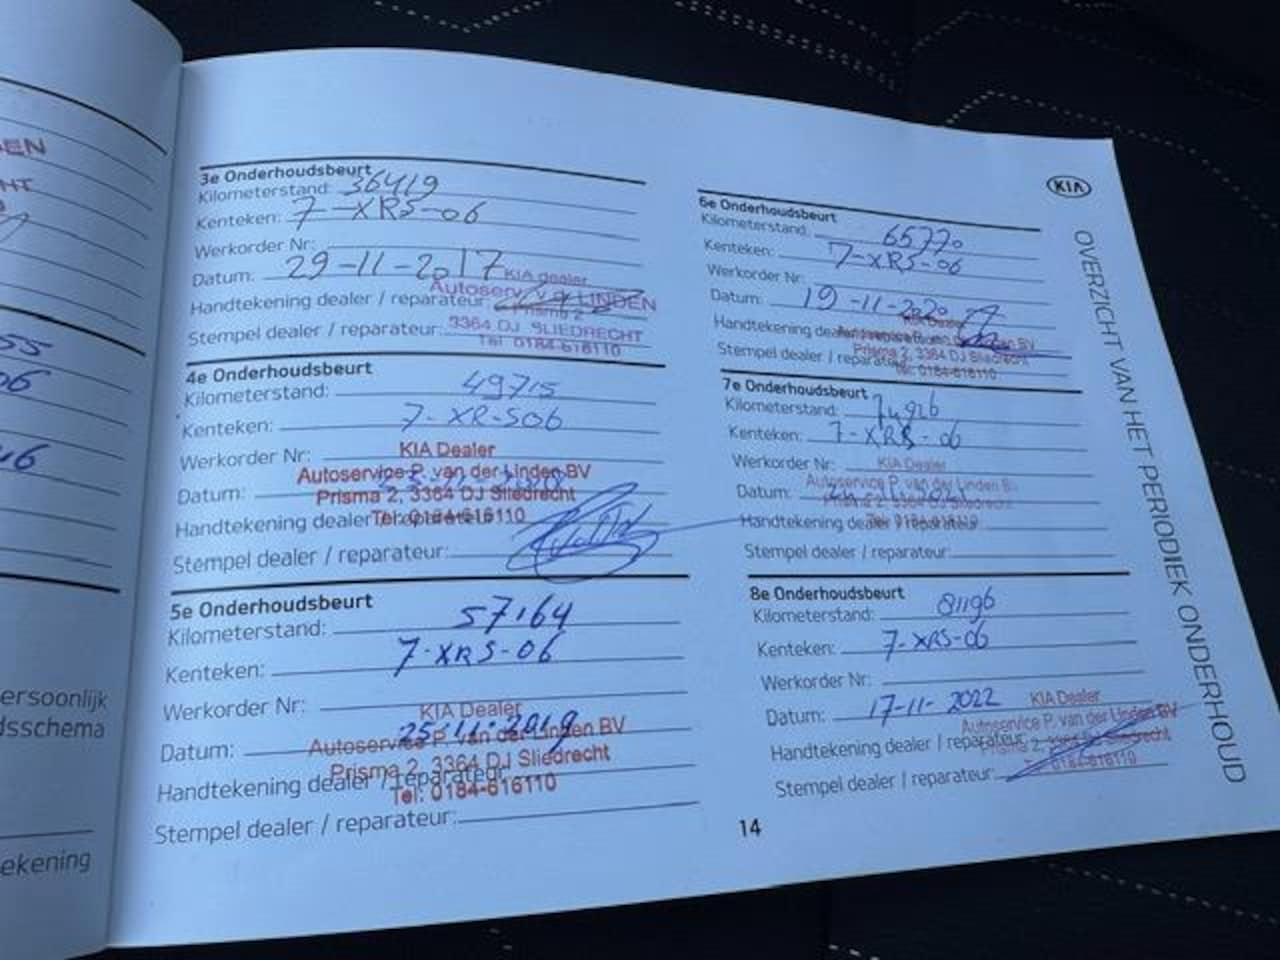 EN
HT
55
06
46
ersoonlijk
dsschema
ekening
3e Onderhoudsbeurt
Kilometerstand: 36419
Kenteken: 7-XRS-06
Werkorder Nr:
Datum: 29-11-2017
KIA dealer
Handtekening dealer / reparateur:
LINDEN
Prisma 2
Stempel dealer / reparateur:
3364 DJ SLIEDRECHT
Tel. 0184-616110
4e Onderhoudsbeurt
Kilometerstand: 49715
Kenteken: 7-XR-S06
Werkorder Nr:
KIA Dealer
Autoservice P. van der Linden BV
Datum:
Prisma 2, 3364 DJ Sliedrecht
Handtekening dealer / reparateur:
Tel: 0184-616110
Stempel dealer / reparateur:
5e Onderhoudsbeurt
Kilometerstand: 57164
Kenteken: 7-XRS-06
Werkorder Nr:
KIA Dealer
Datum: 25-11-2019
Autoservice P. van der Linden BV
Prisma 2, 3364 DJ Sliedrecht
Handtekening dealer / reparateur:
Tel: 0184-616110
Stempel dealer / reparateur:
6e Onderhoudsbeurt
Kilometerstand: 65770
Kenteken: 7-XRS-06
Werkorder Nr:
Datum: 19-11-2020
KIA Dealer
Handtekening dealer / reparateur:
Stempel dealer / reparateur:
Prisma 2, 3364 DJ Sliedrecht
Tel: 0184-616110
7e Onderhoudsbeurt
Kilometerstand: 74926
Kenteken: 7-XRS-06
Werkorder Nr:
KIA Dealer
Autoservice P. van der Linden BV
Datum:
Prisma 2, 3364 DJ Sliedrecht
Handtekening dealer / reparateur:
Tel: 0184-616110
Stempel dealer / reparateur:
8e Onderhoudsbeurt
Kilometerstand: 81196
Kenteken: 7-XRS-06
Werkorder Nr:
Datum: 17-11-2022
KIA Dealer
Autoservice P. van der Linden BV
Handtekening dealer / reparateur:
Stempel dealer / reparateur:
Tel: 0184-616110
14
KIA
OVERZICHT VAN HET PERIODIEK ONDERHOUD